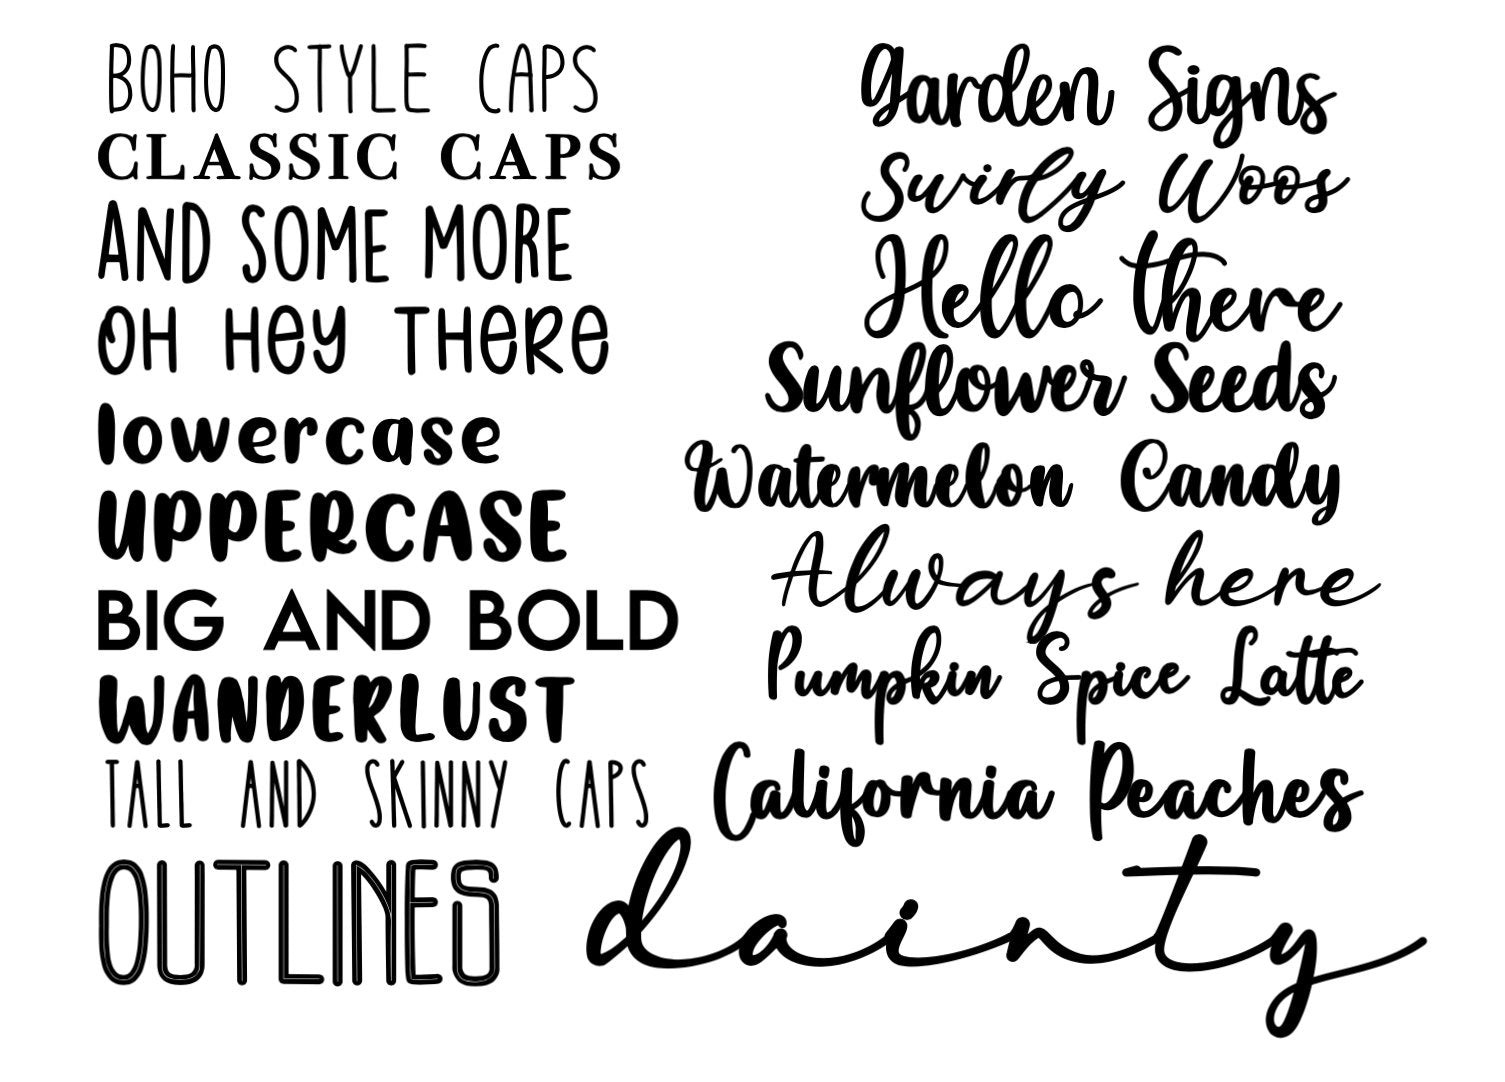 BOHO STYLE CAPS
CLASSIC CAPS
AND SOME MORE
OH HeY THeRe
lowercase
UPPERCASE
BIG AND BOLD
WANDERLUST
TALL AND SKINNY CAPS
OUTLINES
Garden Signs
Swirly Woos
Hello there
Sunflower Seeds
Watermelon Candy
Always here
Pumpkin Spice Latte
California Peaches
dainty